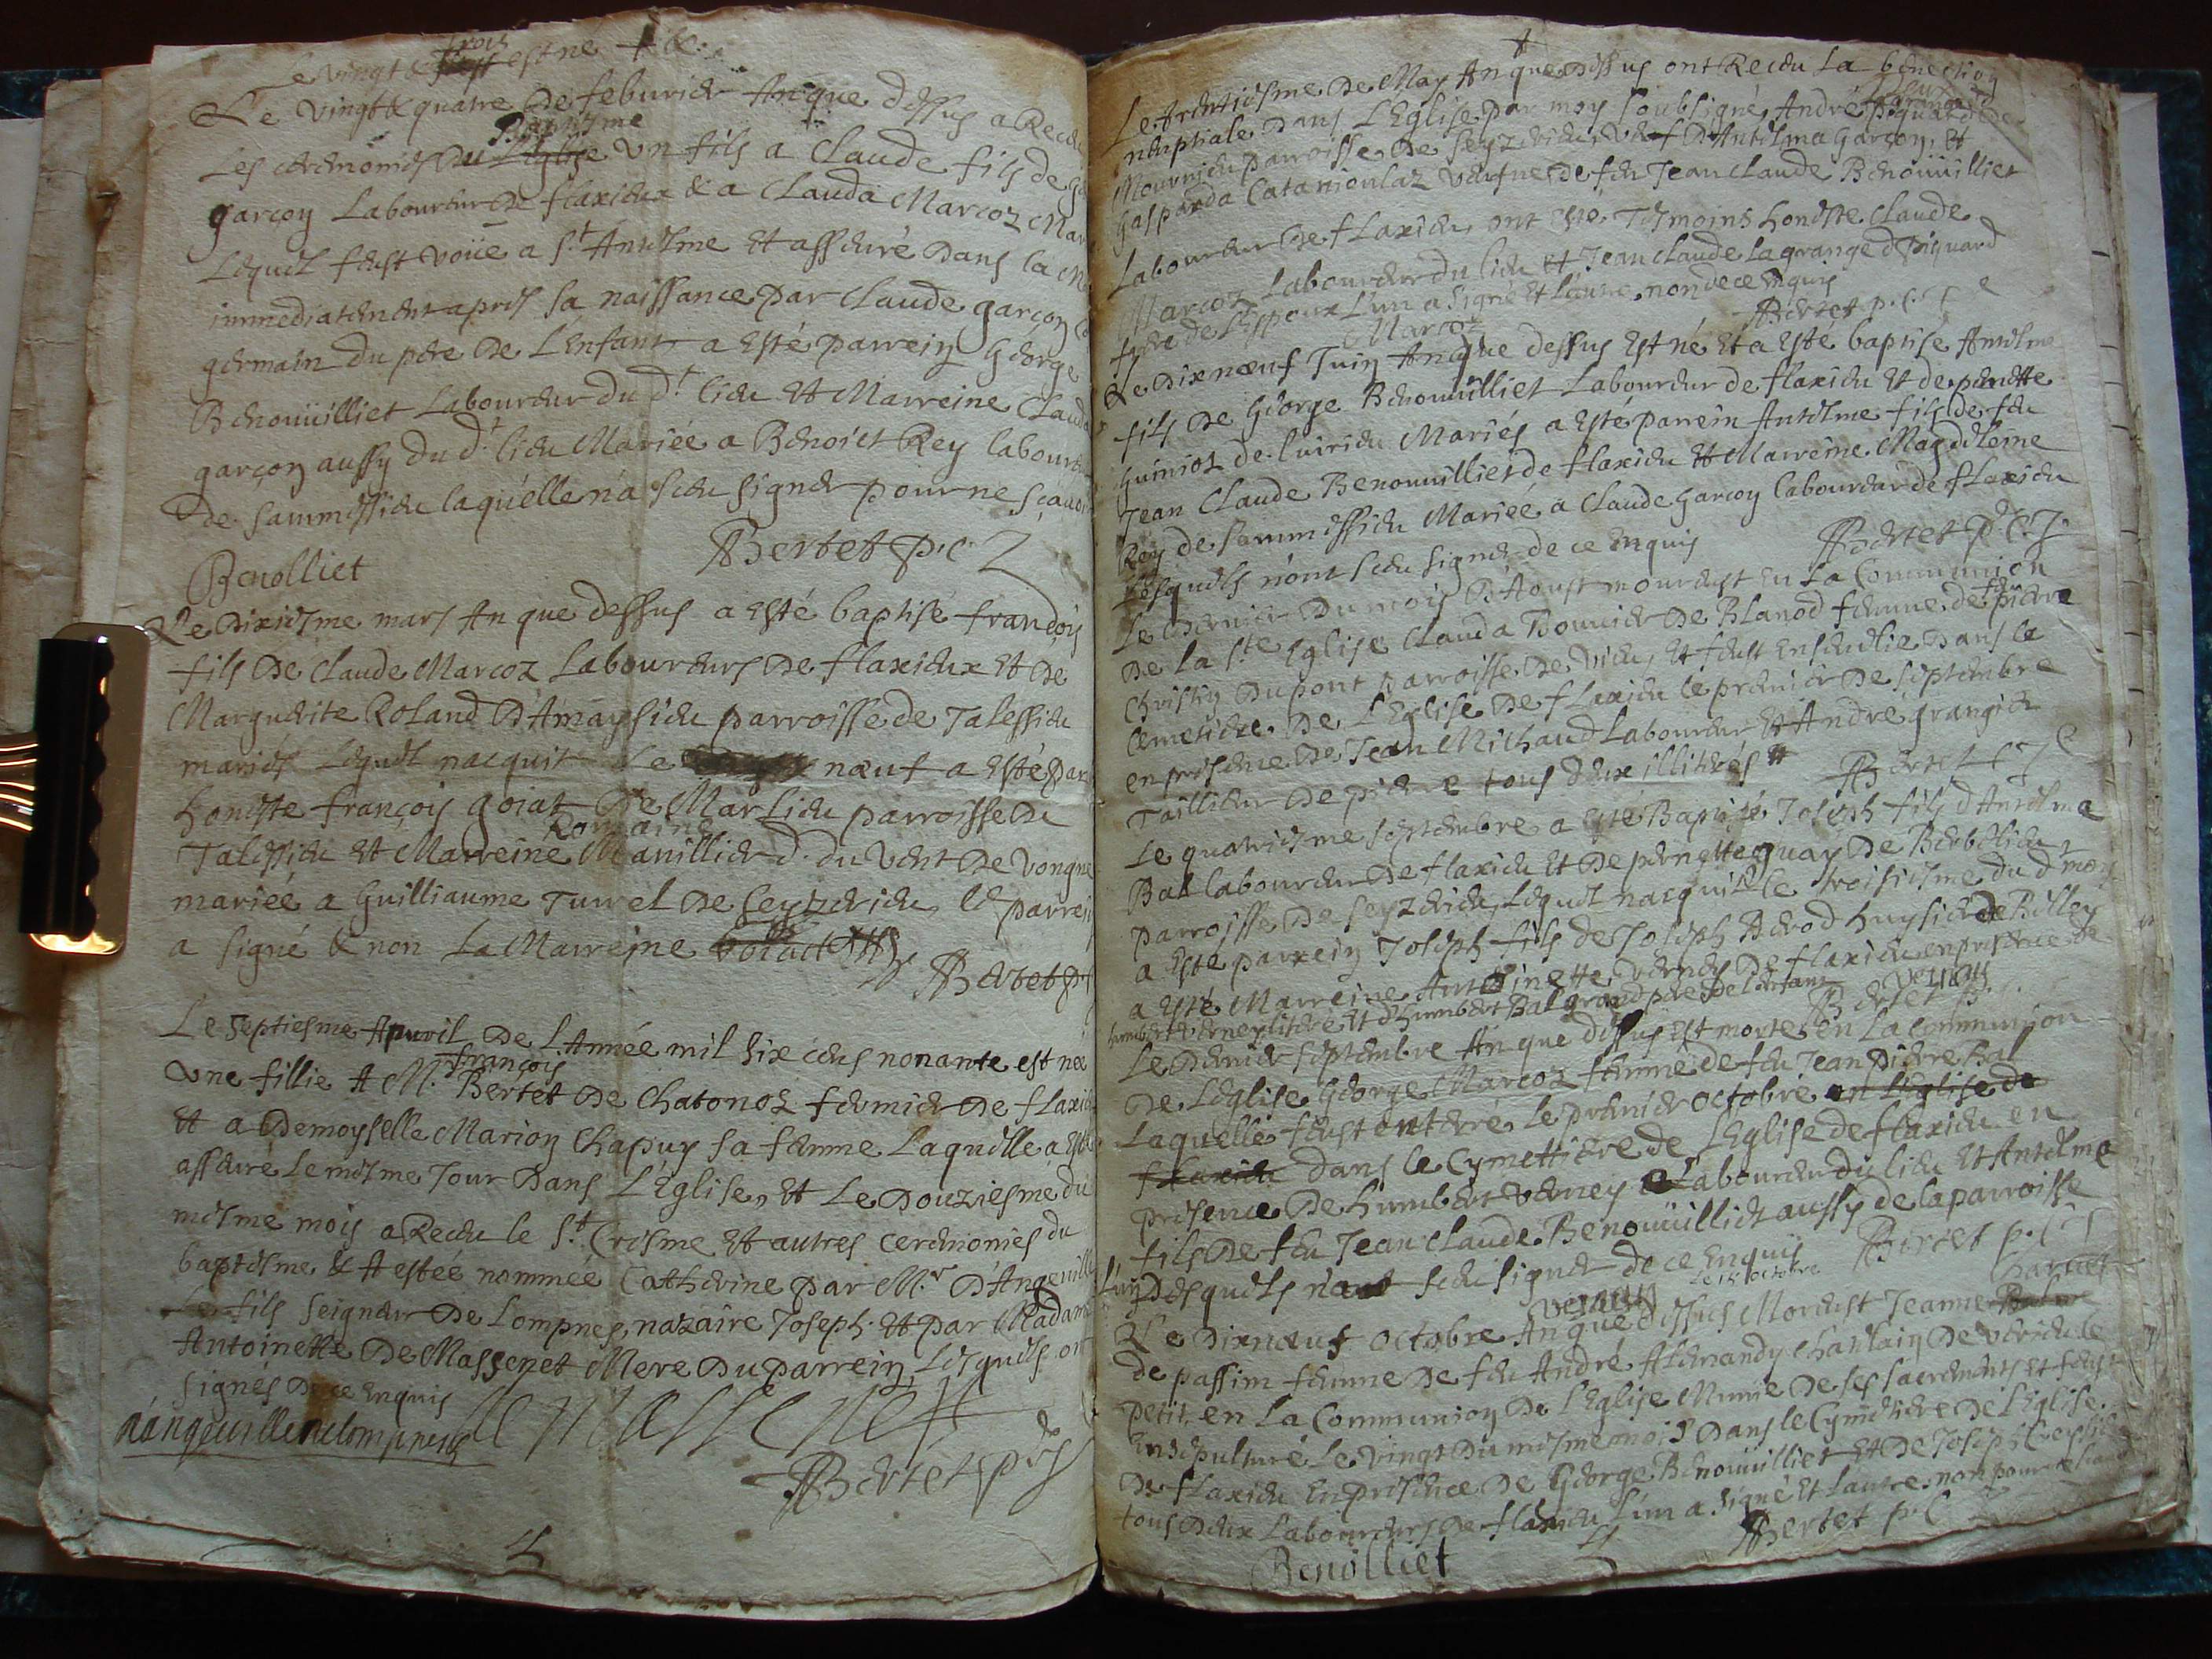 Le vingt & trois est ne + &.
Le vingt & quatre de feburier An que dessus a Receu
Les ceremonies du Baptisme L'Eglise un fils a Claude fils de
garçon Laboureur de flaxieux & a Clauda Marcoz
Lequel feust voüe a St Antelme et asseuré dans la
immediatement apres sa naissance par Claude garçon
germain du pere de L'Enfant a Esté parrein George
Benoüilliet Laboureur du dt lieu et Marreine Clauda
garçon aussy du dt lieu Mariée a Benoict Rey laboureur
de sammissieu laquelle n'a sceu signer pour ne sçauoir
Benolliet Bertet p.c.
Le Dixiesme mars An que dessus a Esté baptisé francois
fils De Claude Marcoz Laboureurs De flaxieux et De
Marguerite Roland D'Amaysieu parroisse de Talessieu
mariés Lequel nacquit Le neuf a Esté par
honeste françois goiat De Marlieu parroisse De
Talissieu et Marreine Romaine Manillier d. du Vent De Vongne
mariée a Guilliaume Turrel De Seyzerieu, le parrein
a signé & non La Marreine
Bertet
Le septiesme Apuril De L'Année mil six cens nonante est née
une fillie A M. françois Bertet De Chatonoz fermier De flaxieu
et a Demoyselle Marion Chapuy sa femme Laquelle a Esté
asseuré Le mesme Jour Dans L'Eglise, et Le Douziesme du
mesme mois a Receu le St Cresme et autres ceremonies du
baptesme & A estée nommée Catherine par Mr D'Angeuille
fils seigneur De Lompnes, nazaire Joseph et par Madame
Antoinette De Massenet Mere Du parrein, Lesquels ont
signés De ce Enquis
dangeuille de lompnes De Massenet
Bertet p
Le trentiesme De May An que dessus ont Receu La benediction
nuptiale Dans L'Eglise par moy soubsigné, André piquard de
Mournieu parroisse De seyzerieu, uef D'Antelma garçon, et
Gasparda Catanioulaz veufue de feu Jean Claude Benoüilliet
Laboureur De flaxieu, ont Esté Tesmoins honeste Claude
Marcoz Laboureur du lieu et Jean Claude Lagrange d piquard
frere de L'Espoux L'un a signé et L'autre non de ce Enquis
Marcoz Bertet p.c.
Le Dixneuf Juin An que dessus Est né et a Esté baptise Antelme
fils De George Benouuilliet Laboureur de flaxieu et de pernette
Guinioz de luirieu Mariés a Esté parrein Antelme fils de feu
Jean Claude Benouuilliet de flaxieu et Marreine Magdeleine
Rey de sammissieu Mariée a Claude Garcon laboureur de flaxieu
Lesquels n'ont sceu signer de ce Enquis Bertet p.c.
Le Dernier Du mois D'Aoust mourust en La Communion
De La Ste Eglise Clauda Bouuier De Blanod femme de feu pierre
Christin Dupont parroisse De Vieu, et feust Enseuelie Dans le
Cemetiere De L'Eglise De flaxieu le premier De septembre
en presence De Jean Michaud Laboureur et André grangier
Taillieur De pierre tous deux illiterés Bertet
Le quatriesme septembre a esté Baptisé Joseph fils d'Antelma
Bal laboureur De flaxieu et De pernette guay De Barbelieu
parroisse De seyzerieu, Lequel nacquit le troisiesme du dt mois
a Este parrein Joseph fils de Joseph Berod huysier De Billey
a Esté Marreine Antoinette Verney De flaxieu en presence de
humbert Verney litere et d'humbert Bal grand pere De L'enfant Verney Bertet p.
Le Dernier septembre An que dessus Est morte en La Communion
De L'eglise George Marcoz femme de feu Jean pierre Bal
Laquelle feust enterré Le premier octobre en L'Eglise de
flaxieu Dans le Cymettiere de L'Eglise de flaxieu en
presence De humbert Verney Laboureur du lieu et Antelme
fils De feu Jean Claude Benouuilliet aussy de la parroisse
L'un Desquels n'a sceu signer de ce Enquis Bertet p.c.
Verney le 15 octobre
Le Dixneuf octobre An que dessus Moreust Jeanne
de passim femme De feu André Alemandy chastlain De Virieu le
petit, en La Communion De L'Eglise Munie De ses sacrements et feust
Ensepulturé Le vingt Du mesme mois Dans le Cymetiere De L'Eglise
De flaxieu En presence De George Benouuilliet et De Joseph
tous Deux Laboureurs De flaxieu L'un a signé et L'autre non pour
Benolliet Bertet p.c.